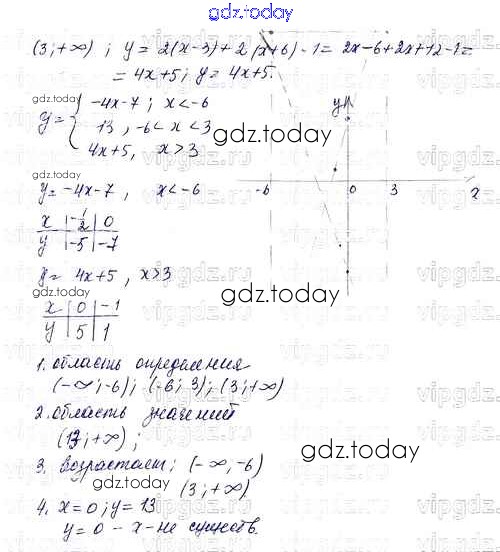 gdz.today
(3; +∞) ; y = 2(x-3)+2(x+6)-1 = 2x-6+2x+12-1 =
= 4x+5; y = 4x+5.
gdz.today
y = { -4x-7; x<-6
13, -6<x<3
4x+5, x>3
gdz.today
y
y = -4x-7, x<-6
-6 0 3
x | -1/2 | 0
y | -5 | -7
y = 4x+5, x>3
gdz.today
x | 0 | -1
y | 5 | 1
1. область определения
(-∞; -6); (-6; 3); (3; +∞)
gdz.today
2. область значений
(13; +∞);
gdz.today
3. возрастает; (-∞, -6)
(3; +∞)
4. x=0; y=13
y=0 - x - не существ.
gdz.today
vipgdz.ru